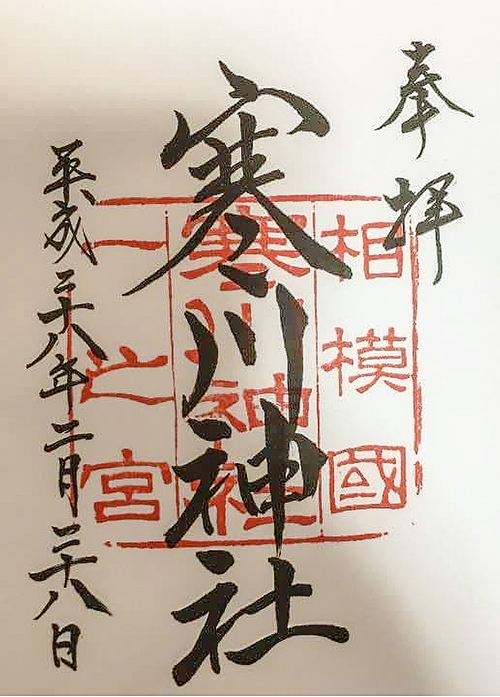 奉拝
相模國
寒川神社
寒川神社
一之宮
平成二十八年二月二十八日